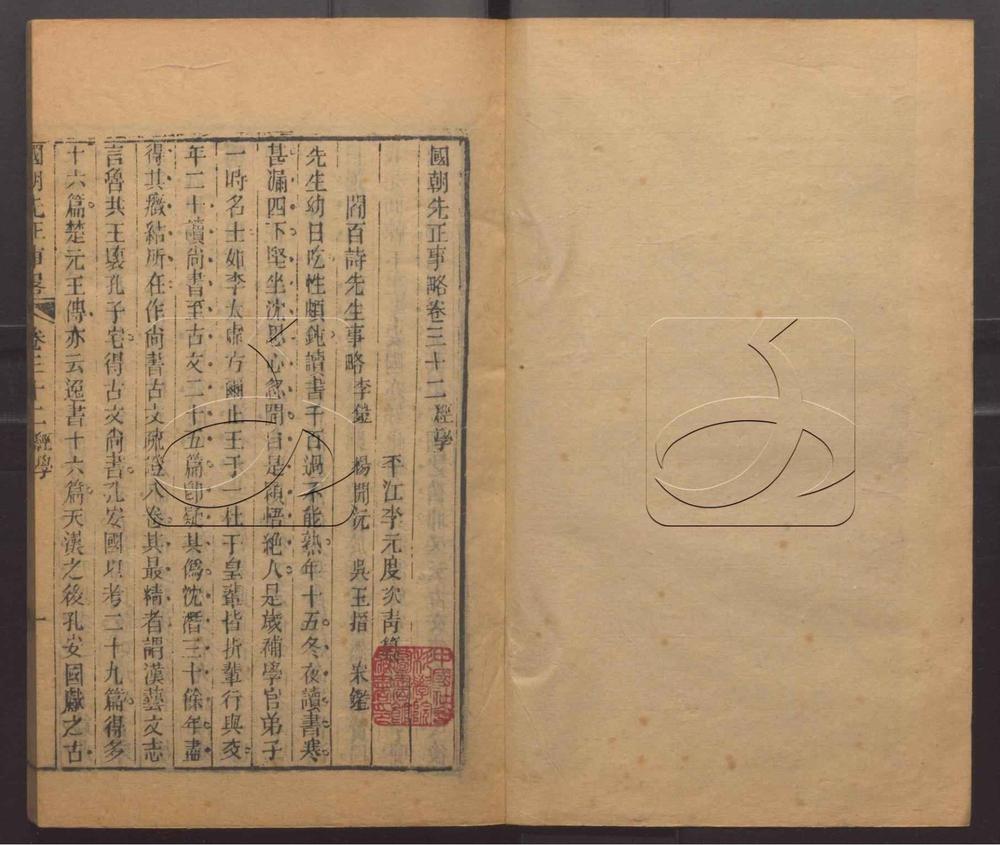 國朝先正事略卷三十二 經學
平江李元度次青纂
閻百詩先生事略 李鎧 楊開沅 吳玉搢 宋鑑
先生幼口吃性頗鈍讀書千百過不能熟年十五冬夜讀書寒
甚漏四下堅坐沈思心忽開自是穎悟絕人是歲補學官弟子
一時名士如李太虛方爾止王于一杜于皇輩皆折輩行與交
年二十讀尚書至古文二十五篇卽疑其僞沈潛三十餘年盡
得其癥結所在作尚書古文疏證八卷其最精者謂漢藝文志
言魯共王壞孔子宅得古文尚書孔安國以考二十九篇得多
十六篇楚元王傳亦云逸書十六篇天漢之後孔安國獻之古
國朝先正事畧 卷三十二 經學 一